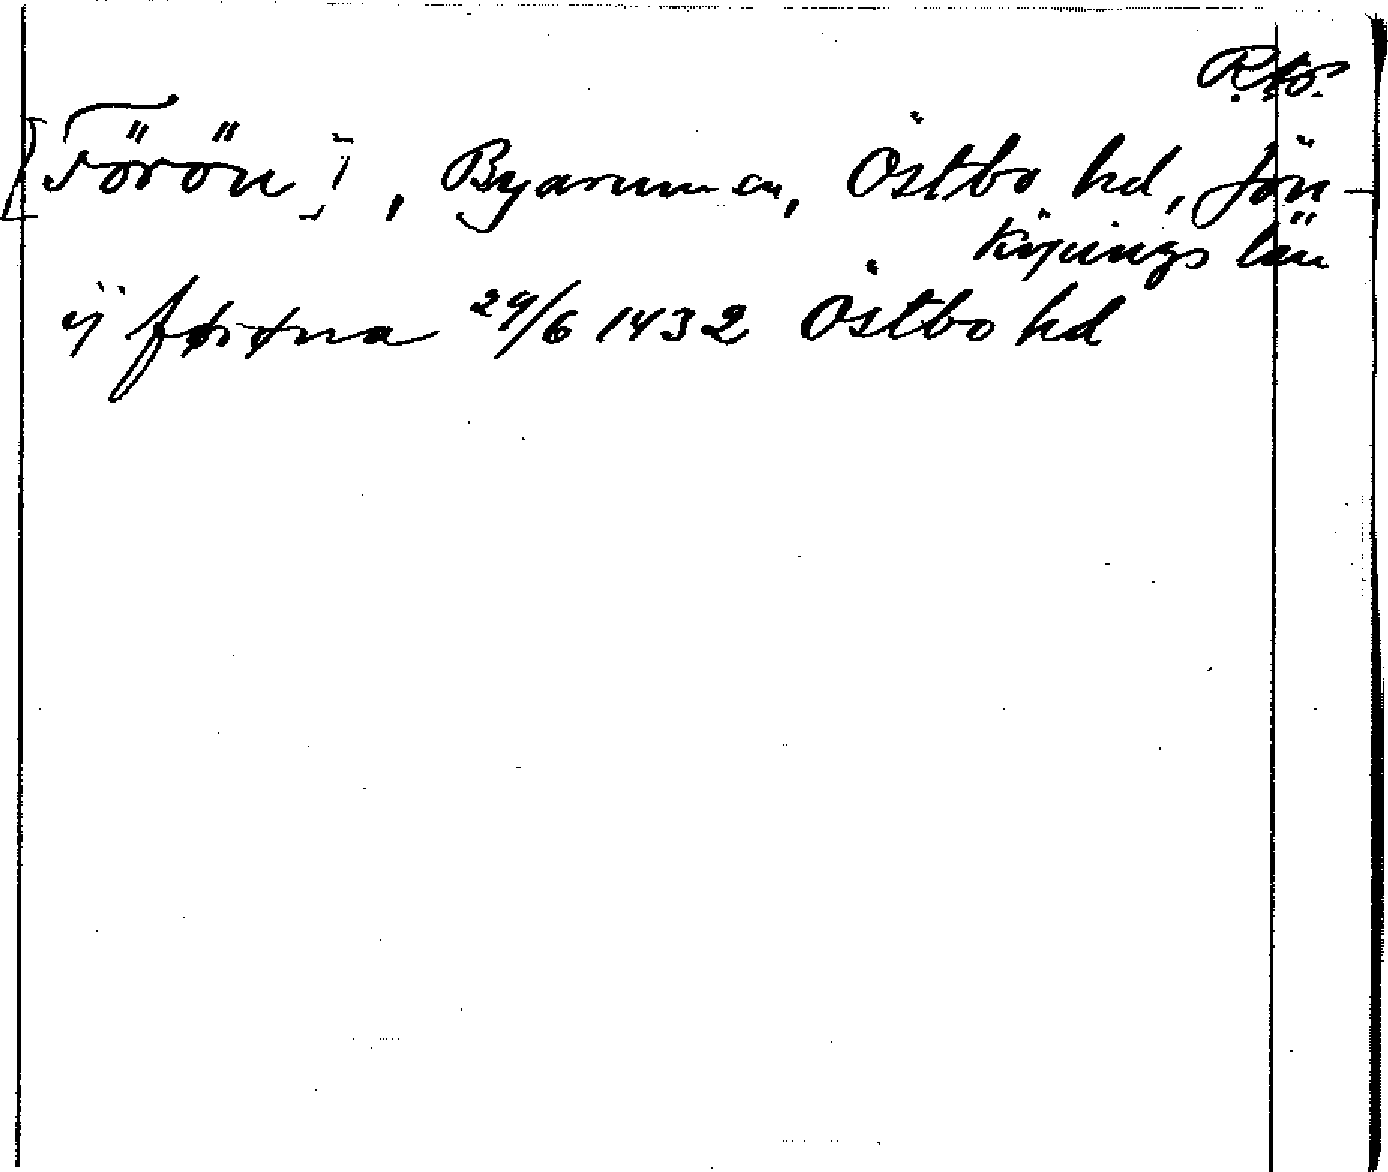 [Förön], Byarums sn, Östbo hd, Jön-
köpings län
ÿ førøna 29/6 1432 Östbo hd